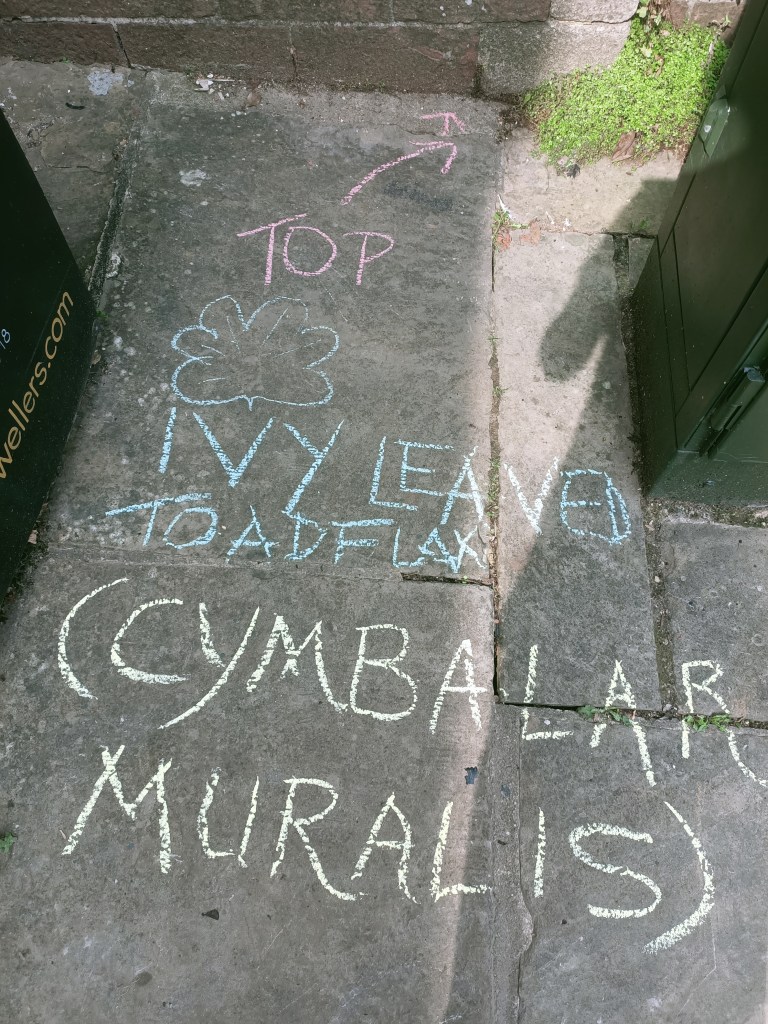 TOP
IVY LEAVED
TOADFLAX
(CYMBALAR
MURALIS)
wellers.com
18